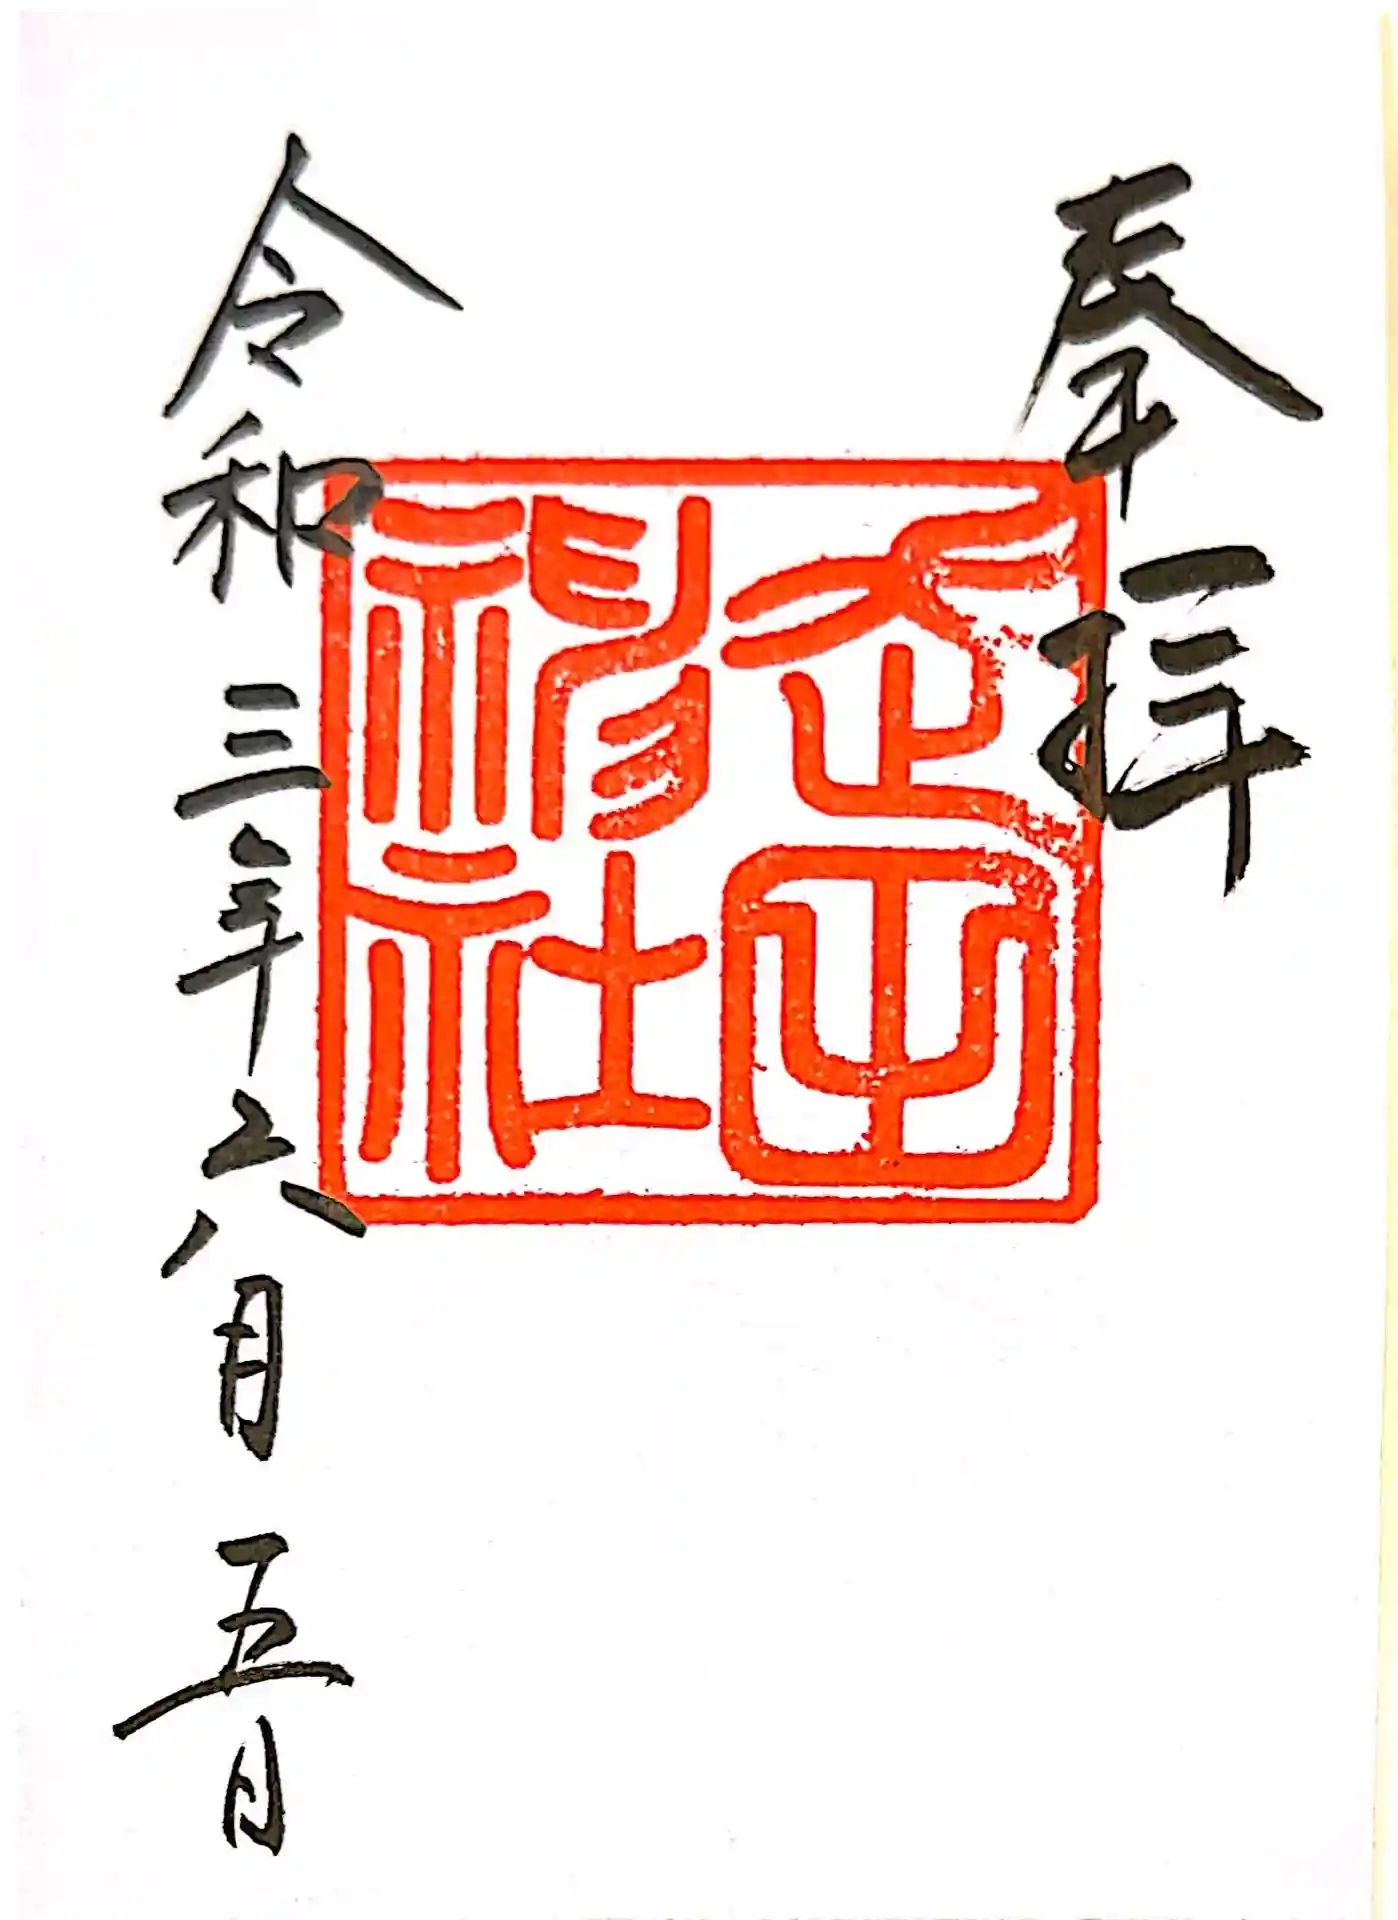 奉拝
走田
神社
令和三年六月五日